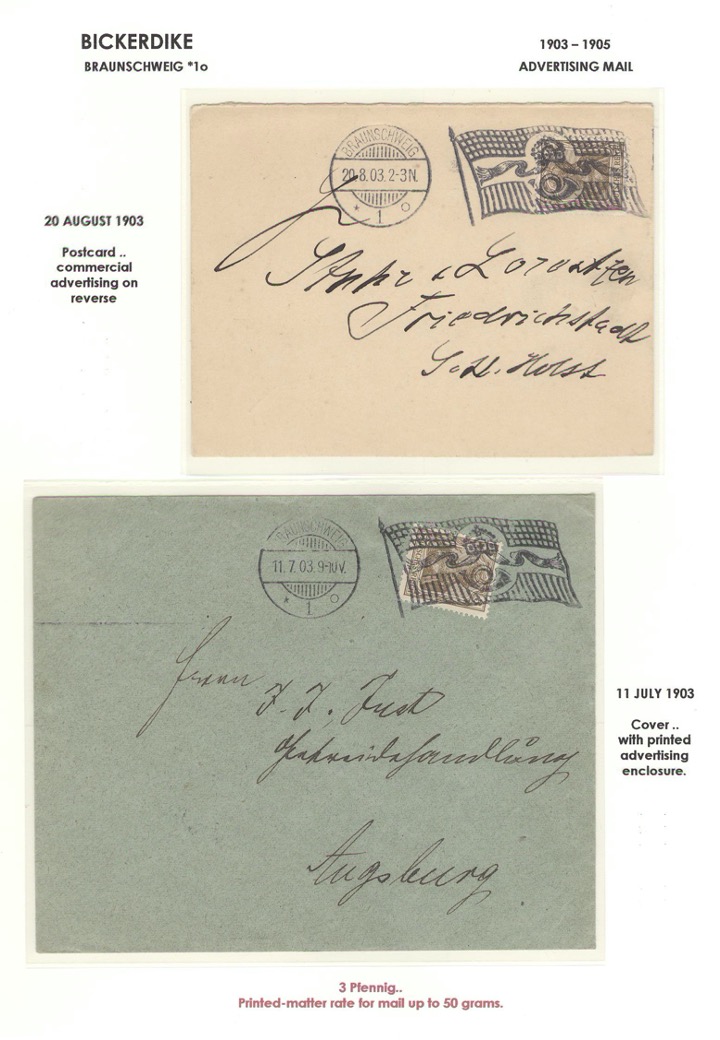 BICKERDIKE
1903 – 1905
BRAUNSCHWEIG *1o
ADVERTISING MAIL
BRAUNSCHWEIG
20.8.03.2-3N.
* 1 o
20 AUGUST 1903
Postcard ..
commercial
advertising on
reverse
Friedrichstadt
S. H. Holst
BRAUNSCHWEIG
11.7.03.9-10V.
* 1 o
Herrn
J. J. Just
Getreidehandlung
Augsburg
11 JULY 1903
Cover ..
with printed
advertising
enclosure.
3 Pfennig..
Printed-matter rate for mail up to 50 grams.